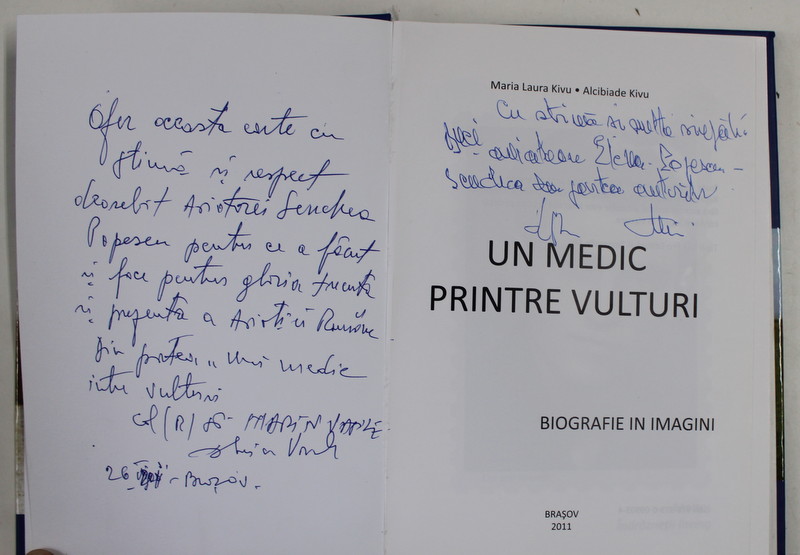 Ofer aceasta carte cu
stimă și respect
deosebit Aviatorei Senchea
Popescu pentru ce a făcut
și face pentru gloria trecută
și prezentă a Aviației Române
Din partea „Unui medic
între vulturi
Col (R) dr MARIN VASILE
26 - Brașov.
Maria Laura Kivu • Alcibiade Kivu
Cu stimă si multă simpatie
aviatoare Elena Popescu -
Senchea din partea autorilor
UN MEDIC
PRINTRE VULTURI
BIOGRAFIE IN IMAGINI
BRAŞOV
2011